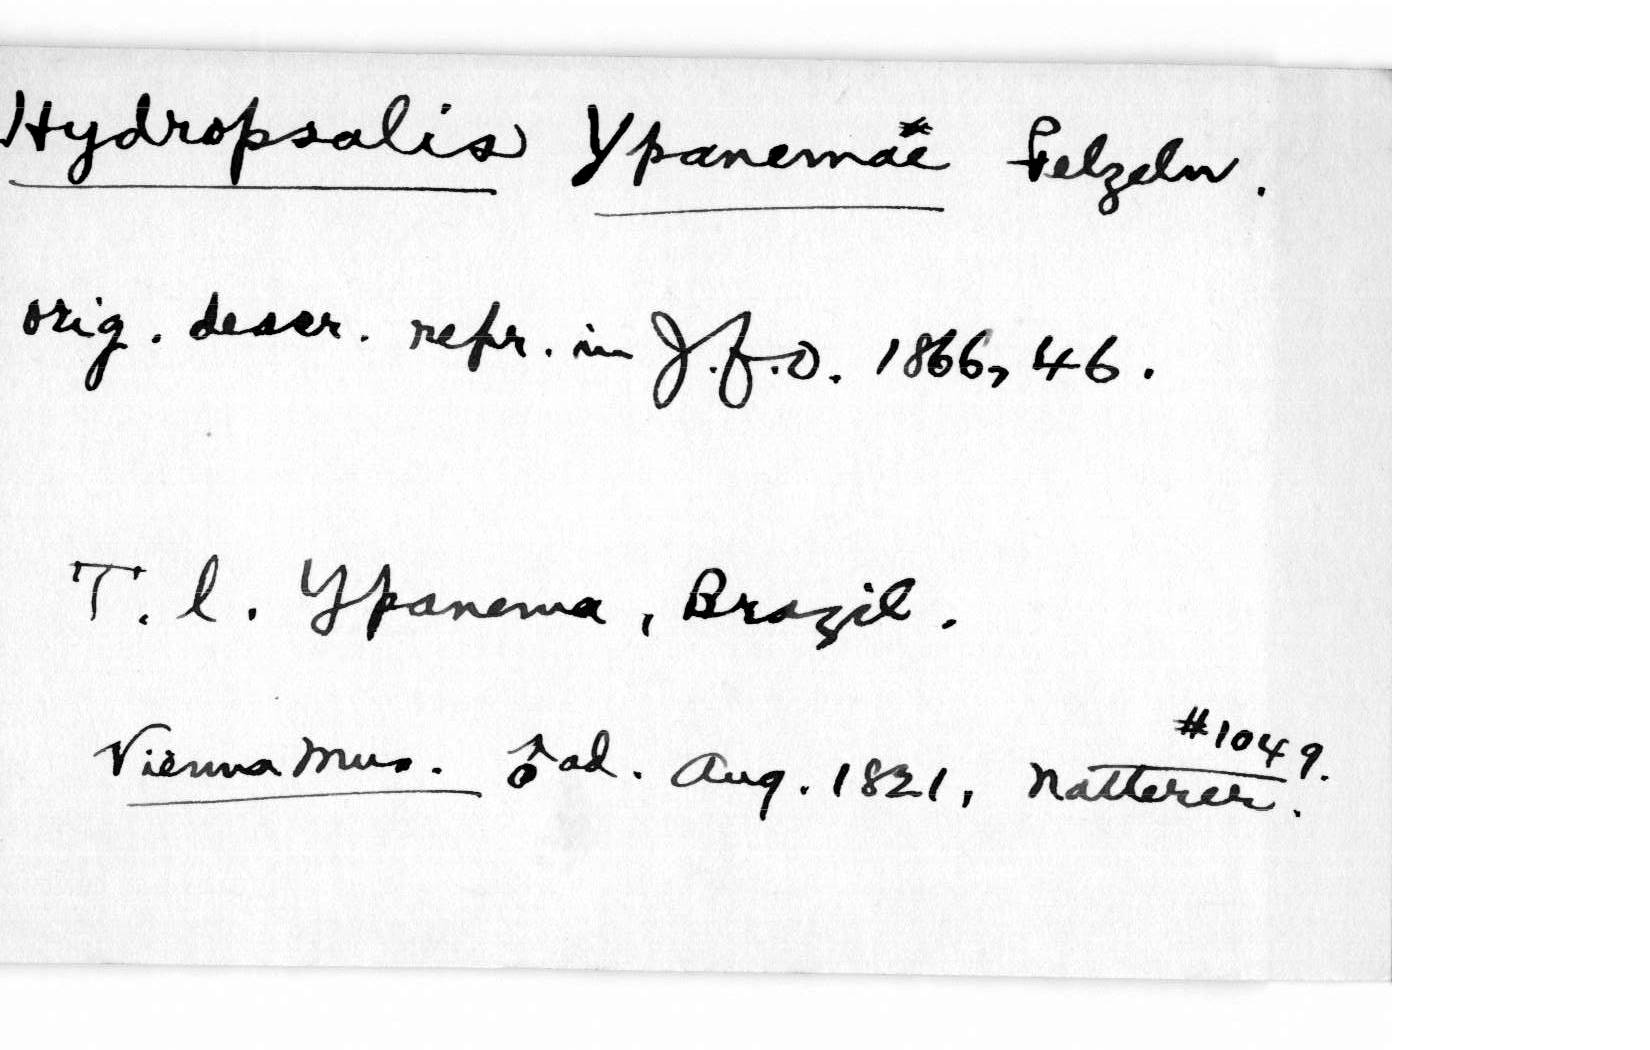 Hydropsalis Ypanemae Pelzeln.
orig. descr. repr. in J.f.O. 1866, 46.
T. l. Ypanema, Brazil.
#1049.
Vienna Mus. ♂ ad. Aug. 1821, Natterer.